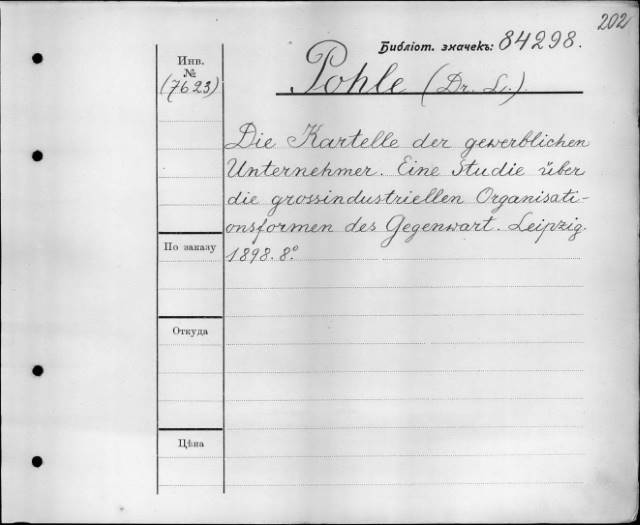 202
Библіот. значекъ: 84298.
Инв.
№
(7623)
Pohle (Dr. L.)
Die Kartelle der gewerblichen
Unternehmer. Eine Studie über
die grossindustriellen Organisati-
onsformen des Gegenwart. Leipzig.
1898. 8°.
По заказу
Откуда
Цѣна